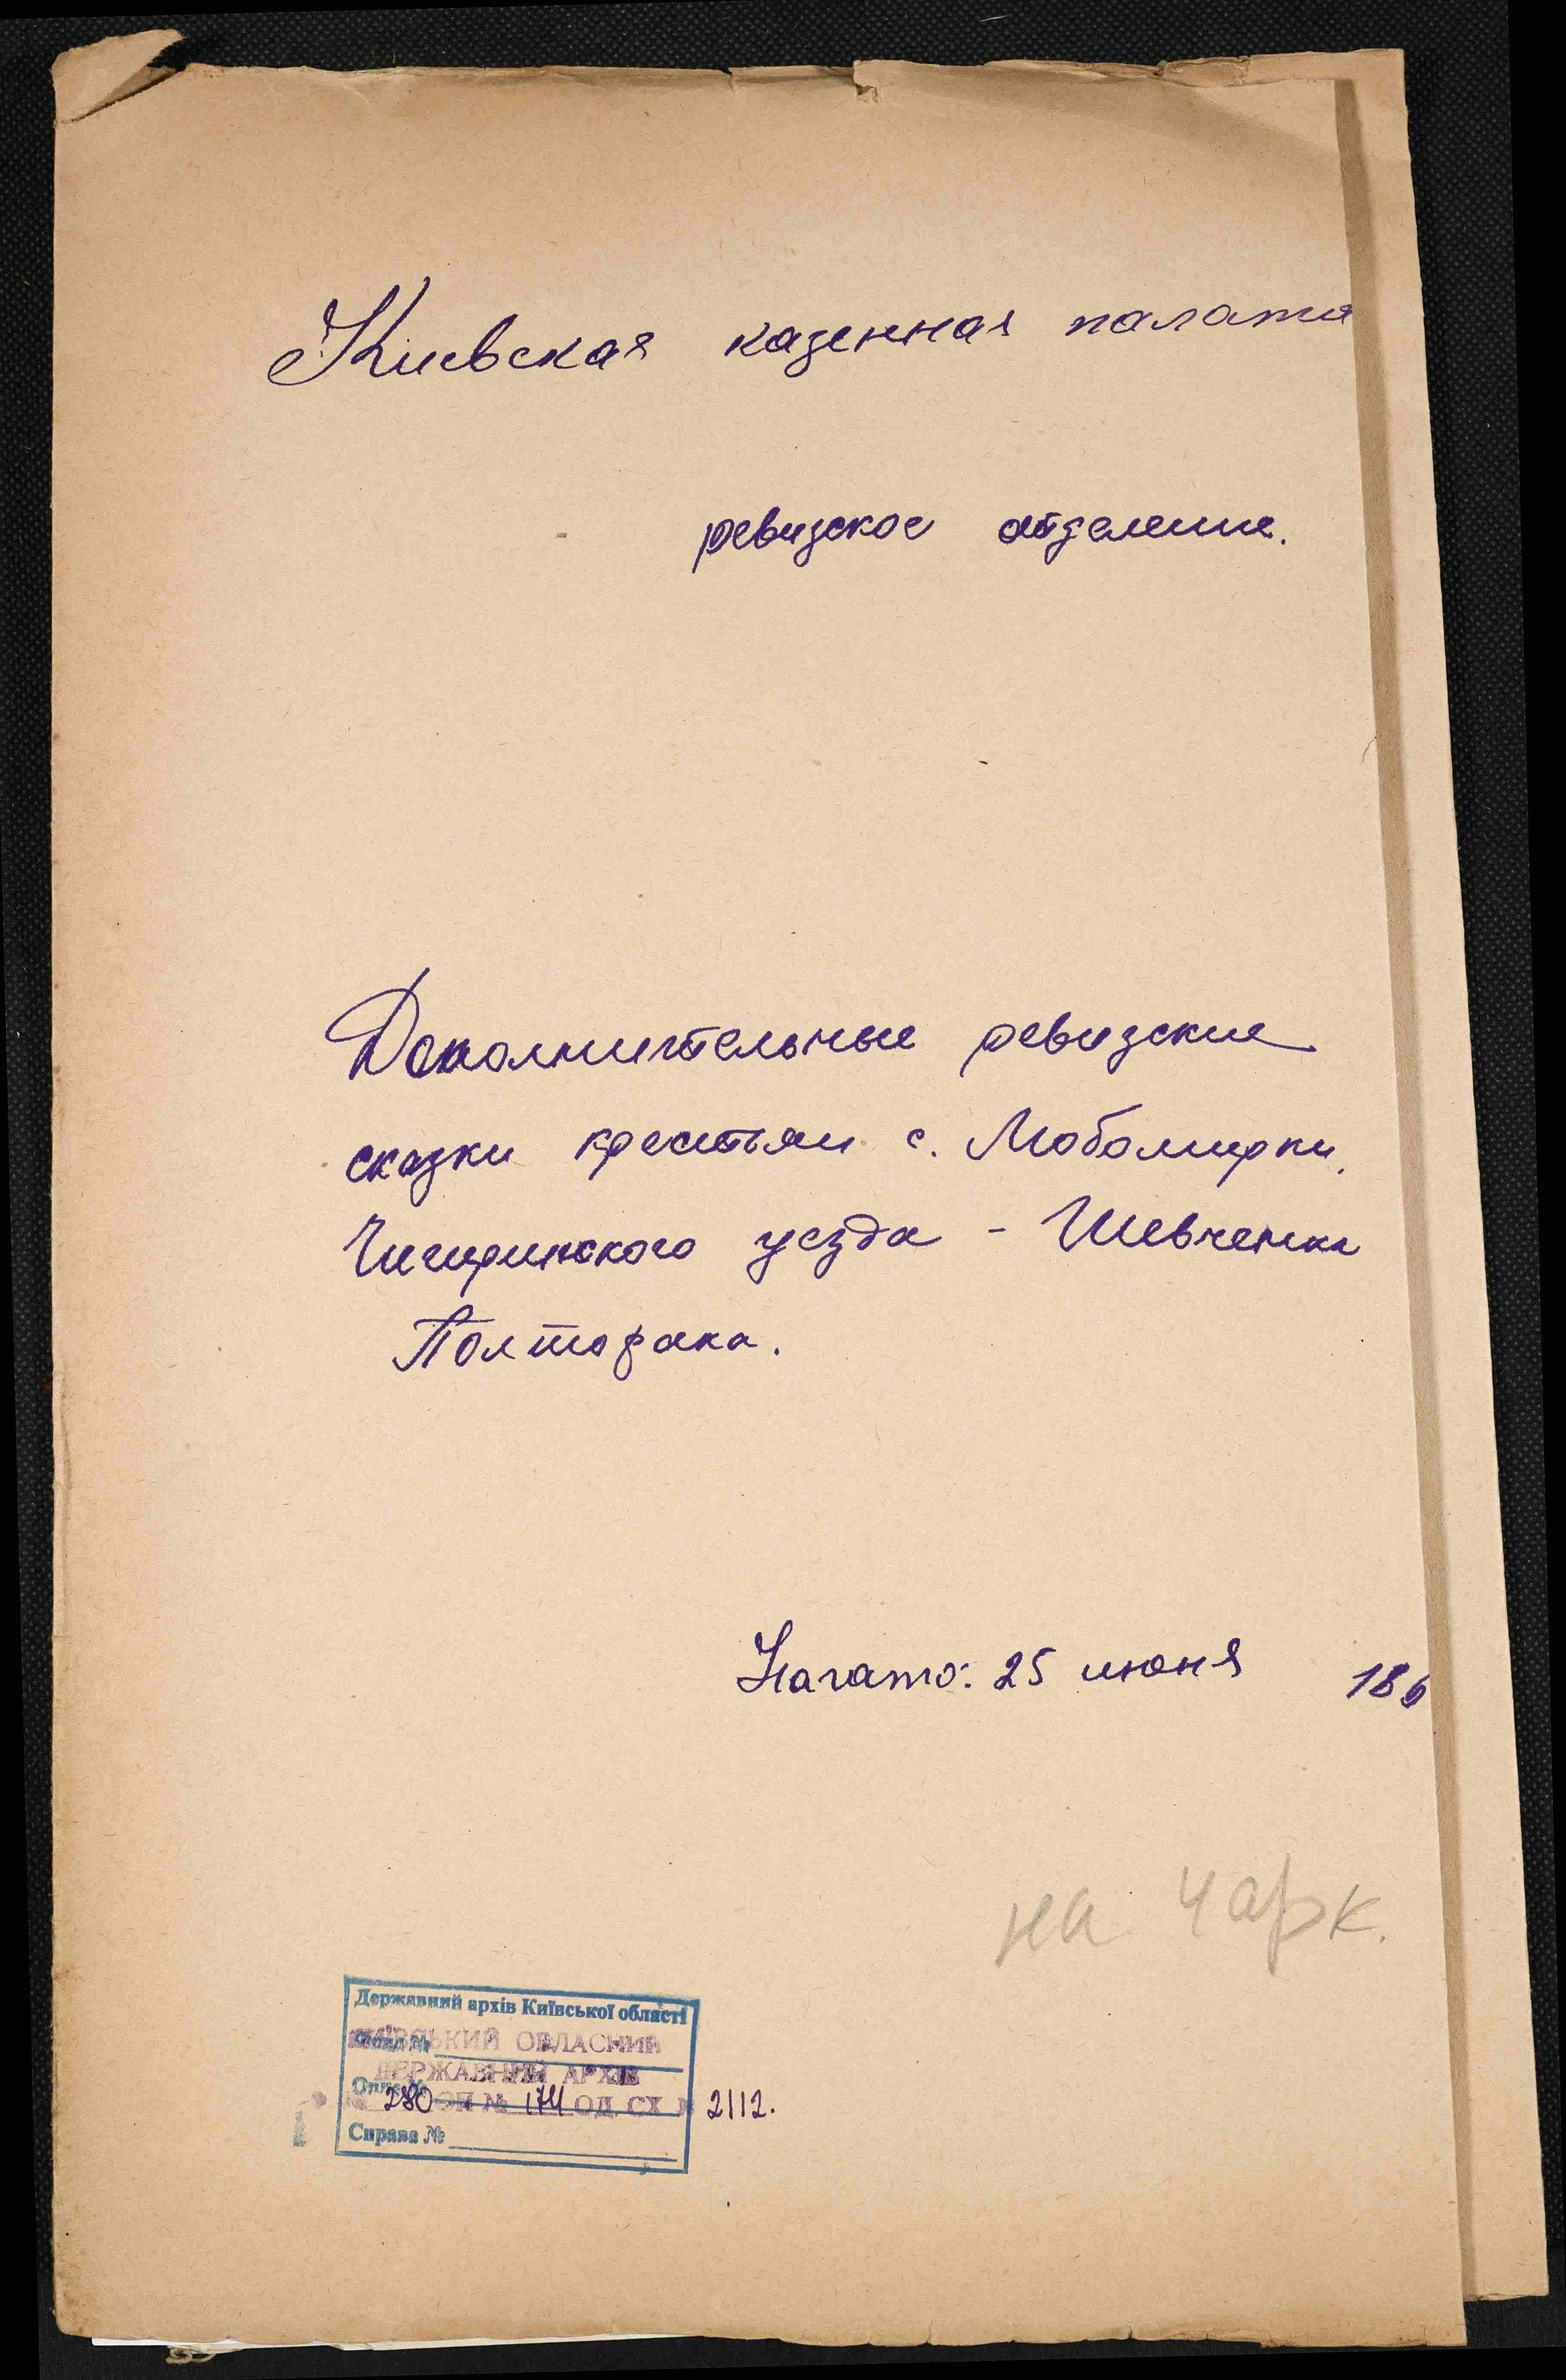 Киевская казенная палата
ревизское отделение.
Дополнительные ревизские
сказки крестьян с. Любомирки,
Чигиринского уезда - Шевченка
Полторака.
Начато: 25 июня 186
на 4 арк.
Державний архів Київської області
КИЇВСЬКИЙ ОБЛАСНИЙ
ДЕРЖАВНИЙ АРХІВ
Опис №
280 ОП № 174 ОД. СХ 2112.
Справа №